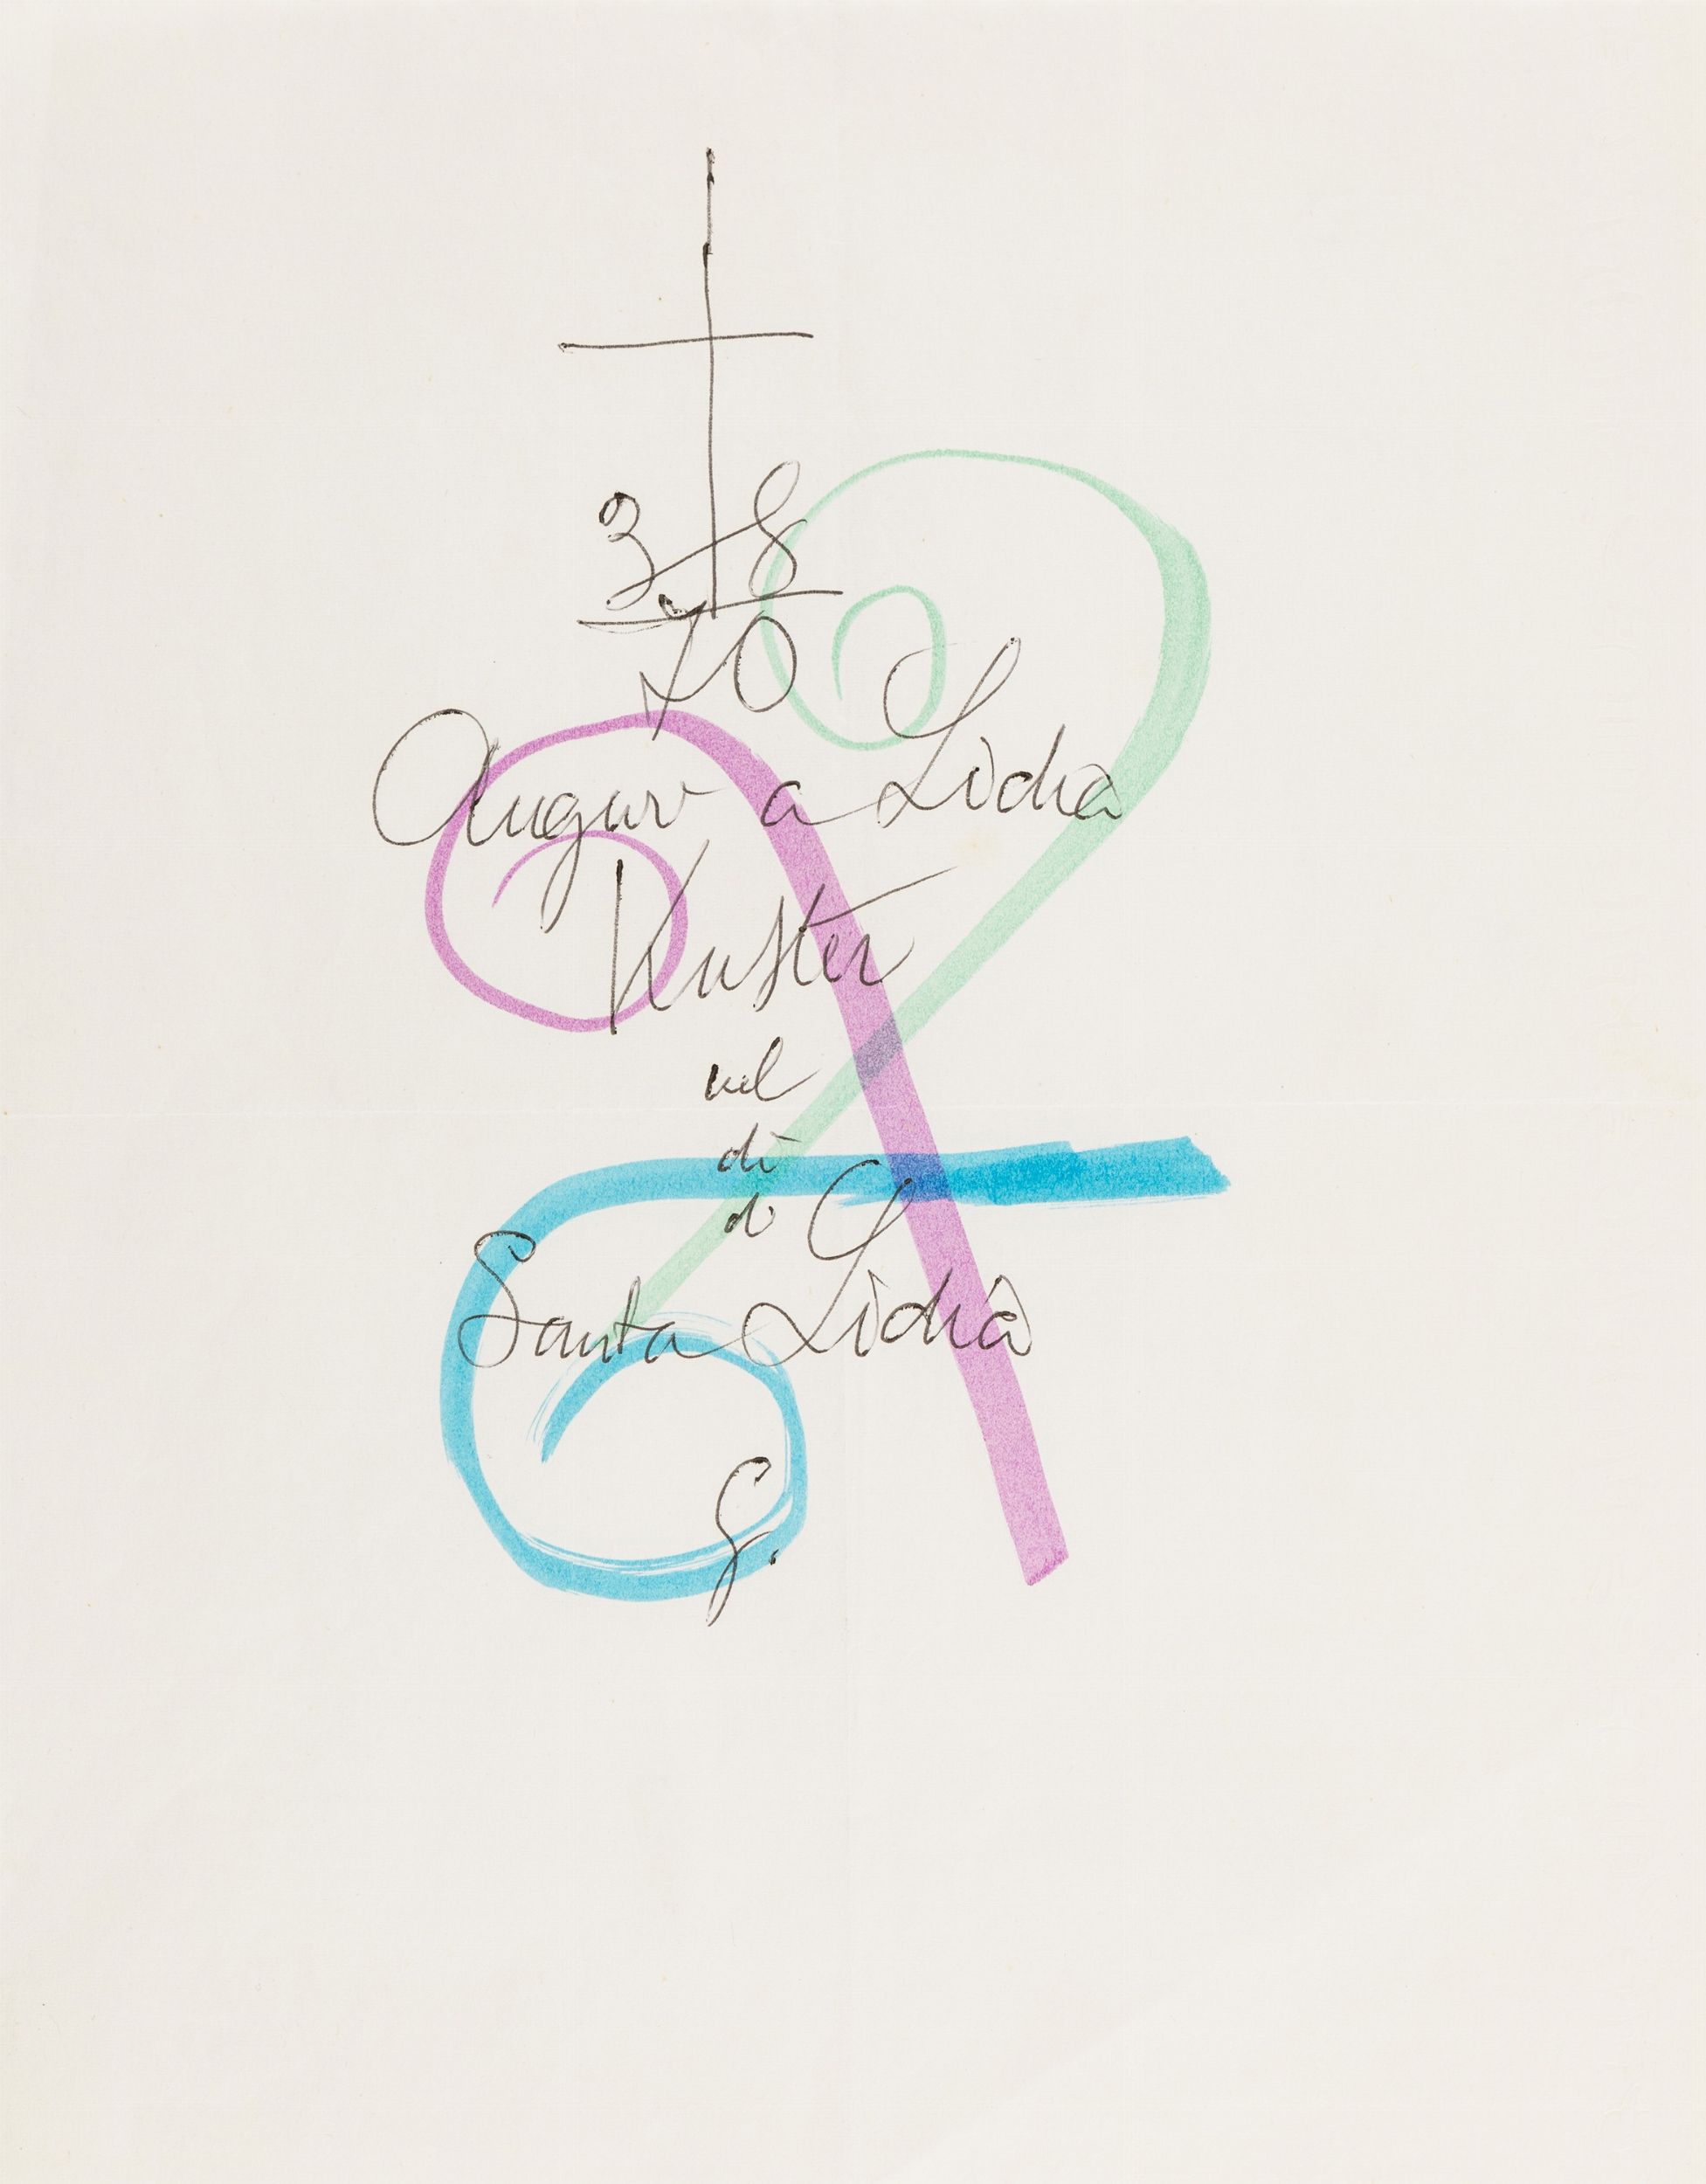 3 8
70
Auguri a Lidia
Kuster
nel
dì
di
Santa Lidia
G.